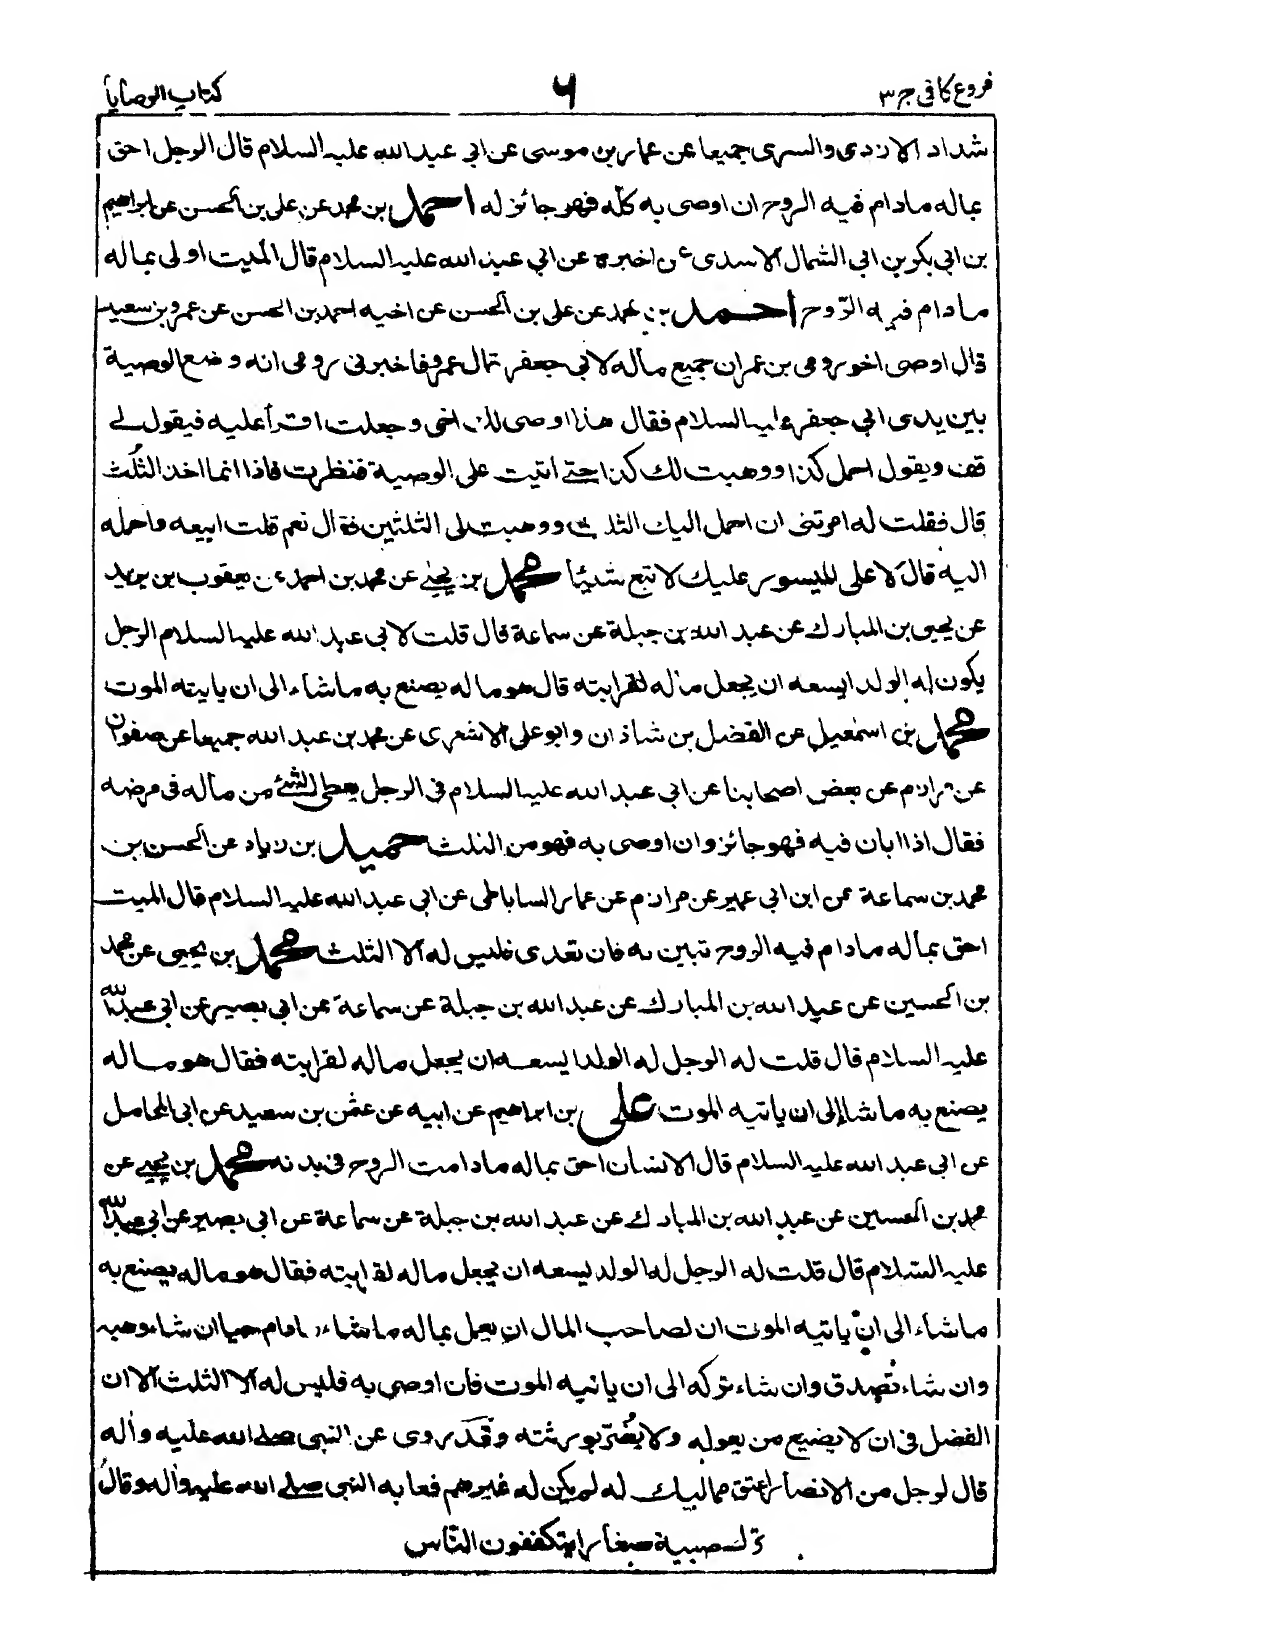 فروع كافى ج ٣
٦
كتاب الوصايا
شداد الازدى والسرى جميعا عن عمار بن موسى عن ابى عبد الله عليه السلام قال الرجل احق
بماله مادام فيه الروح ان اوصى به كلّه فهو جائز له احمد بن محمد عن على بن الحسن عن ابراهيم
بن ابى بكر بن ابى الشمال الاسدى عمن اخبره عن ابى عبد الله عليه السلام قال الميت اولى بماله
مادام فيه الرّوح احمد بن محمد عن على بن الحسن عن اخيه احمد بن الحسن عن عمرو بن سعيد
قال اوصى اخو رومى بن عمران جميع ماله لابى جعفر قال عمرو فاخبرنى رومى انه وضع الوصية
بين يدى ابى جعفر عليه السلام فقال هذا اوصى لك اخى وجعلت اقرأ عليه فيقول لے
قف ويقول احمل كذا ووهبت لك كذا حتے اتيت على الوصية فنظرت فاذا انما اخذ الثُلث
قال فقلت له امرتنى ان احمل اليك الثلث ووهبت لى الثلثين فقال نعم قلت ابيعه واحمله
اليه قال لا على الميسور عليك لا تبع شيئا محمد بن يحيے عن محمد بن احمد عن يعقوب بن يزيد
عن يحيى بن المبارك عن عبد الله بن جبلة عن سماعة قال قلت لابى عبد الله عليه السلام الرجل
يكون له الولد ايسعه ان يجعل ماله لقرابته قال هو ماله يصنع به ماشاء الى ان ياتيه الموت
محمد بن اسمعيل عن الفضل بن شاذان وابو على الاشعرى عن محمد بن عبد الله جميعا عن صفوان
عن مرازم عن بعض اصحابنا عن ابى عبد الله عليه السلام فى الرجل يعطى الشئ من ماله فى مرضه
فقال اذا ابان فيه فهو جائز وان اوصى به فهو من الثلث حميد بن زياد عن الحسن بن
محمد بن سماعة عن ابن ابى عمير عن مرازم عن عمار الساباطى عن ابى عبد الله عليه السلام قال الميت
احق بماله مادام فيه الروح تبين به فان تعدى فليس له الا الثلث محمد بن يحيى عن محمد
بن الحسين عن عبد الله بن المبارك عن عبد الله بن جبلة عن سماعة عن ابى بصير عن ابى عبد الله
عليه السلام قال قلت له الرجل له الولد ايسعه ان يجعل ماله لقرابته فقال هو ماله
يصنع به ما شاء الى ان ياتيه الموت على بن ابراهيم عن ابيه عن عثمن بن سعيد عن ابى المحامل
عن ابى عبد الله عليه السلام قال الانسان احق بماله مادامت الروح فى بدنه محمد بن يحيے عن
محمد بن الحسين عن عبد الله بن المبارك عن عبد الله بن جبلة عن سماعة عن ابى بصير عن ابى عبد الله
عليه السّلام قال قلت له الرجل له الولد ليسعه ان يجعل ماله لقرابته فقال هو ماله يصنع به
ماشاء الى ان ياتيه الموت ان لصاحب المال ان يعمل بماله ما شاء مادام حيا ان شاء وهبه
وان شاء تصدق وان شاء تركه الى ان ياتيه الموت فان اوصى به فليس له الا الثلث الا ان
الفضل فى ان لا يضيع من يعوله ولا يضرّ بورثته وقد روى عن النبى صلے الله عليه واٰله
قال لرجل من الانصار اعتق مماليك له لم يكن له غيرهم فعابه النبى صلے الله عليه واٰله وقال
ترك صبية صغارا يتكففون النّاس